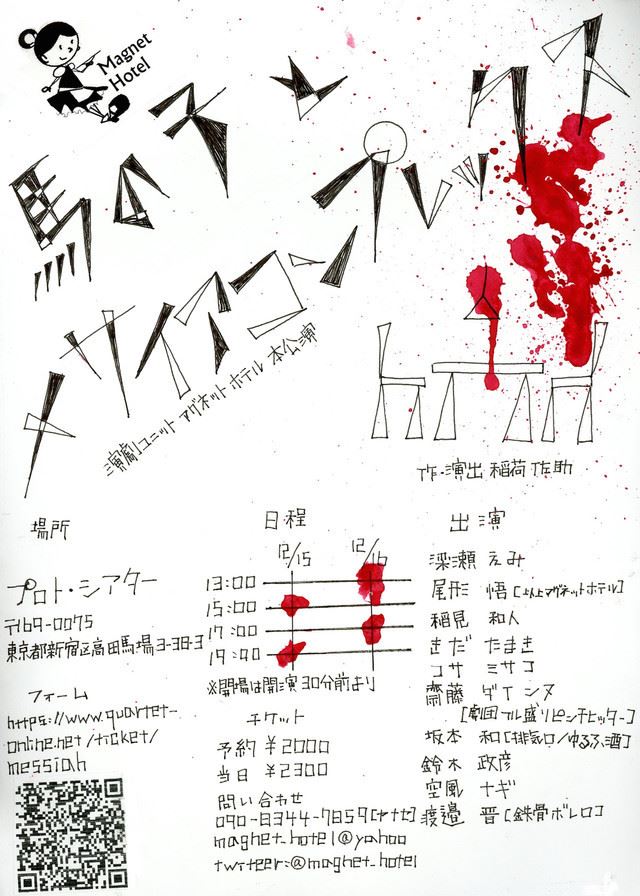 Magnet
Hotel
馬の子と
メサイアコンプレックス
演劇ユニット マグネットホテル 本公演
作・演出 稲荷 佐助
場所
プロト・シアター
〒169-0075
東京都新宿区高田馬場3-38-3
フォーム
https://www.quartet-
online.net/ticket/
messiah
日程
12/15 12/16
13:00
15:00
17:00
19:00
※開場は開演30分前より
チケット
予約 ¥2000
当日 ¥2300
問い合わせ
090-8344-7859[ヤナセ]
magnet_hotel@yahoo
twiteer:@magnet_hotel
出演
梁瀬 えみ
尾形 悟[以上マグネットホテル]
稲見 和人
きだ たまき
コサ ミサコ
齋藤
[劇団フル盛りピンチヒッター]
坂本 和[排気口/ゆるふ酒]
鈴木 政彦
空風 ナギ
渡邉 晋[鉄骨ボレロ]